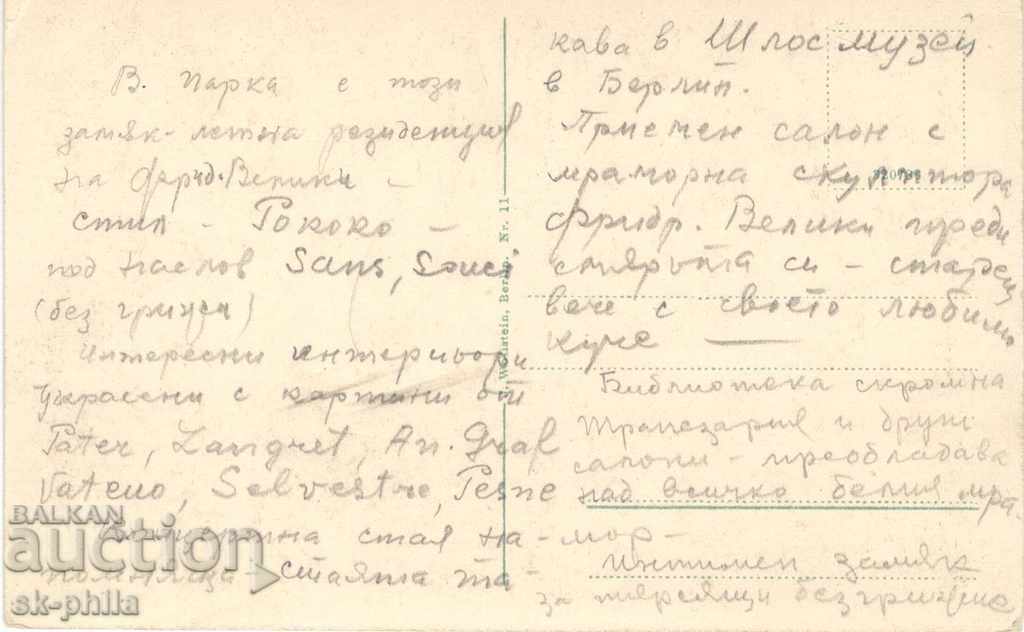 В. парка е този
замяк-летна резиденция
на Фрид. Велики –
стил – Рококо –
под наслов Sans, Souci
(без грижи)
Интересни интериьори
украсени с картини от
Pater, Lancret, An. Graf
Vateuo, Selvestre, Pesne
Концертна стая на-
помняща стаята та-
кава в Шлос музей
в Берлин.
Приемен салон с
мраморна скулптора
Фридр. Велики преди
смъртта си –
вече с своето любимо
куче —
Библиотека скромна
трапезария и други
салони – преоблядава
над всичко белия мра-
мор –
Интимен замяк
за търсящи безгрижие
W. Weinstein, Berlin. Nr. 11
BALKAN
auction
sk-phila